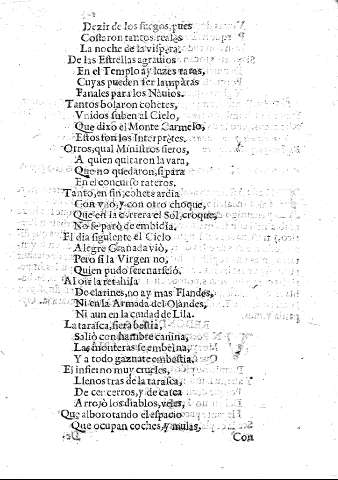 Dezir de los fuegos, pues
Costaron tantos reales
La noche de la vispera.
De las Estrellas agrauios
En el Templo ay luzes raras,
Cuyas pueden ser lamparas
Fanales para los Nauios.
Tantos bolaron cohetes,
Vnidos suben al Cielo,
Que dixo el Monte Carmelo,
Estos son los Interpretes.
Otros, qual Ministros fieros,
A quien quitaron la vara,
Que no quedaron, si para
En el concurso rateros.
Tanto, en fin, cohete ardia
Con vno, y con otro choque,
Que en la carrera el Sol, croque,
No se parò de embidia.
El dia siguiente el Cielo
Alegre Granada viò,
Pero si la Virgen no,
Quien pudo serenarselo.
Al oir la retahila
De clarines, no ay mas Flandes,
Ni en la Armada del Olandes,
Ni aun en la ciudad de Lila.
La tarasca, fiera bestia,
Saliò con hambre canina,
Las monteras se embelna,
Y a todo gaznate embestia.
El infierno muy crueles,
Llenos tras de la tarasca,
De cer cerros, y de casca
Arrojò los diablos, veles,
Que alborotando el espacio
Que ocupan coches, y mulas,
Con